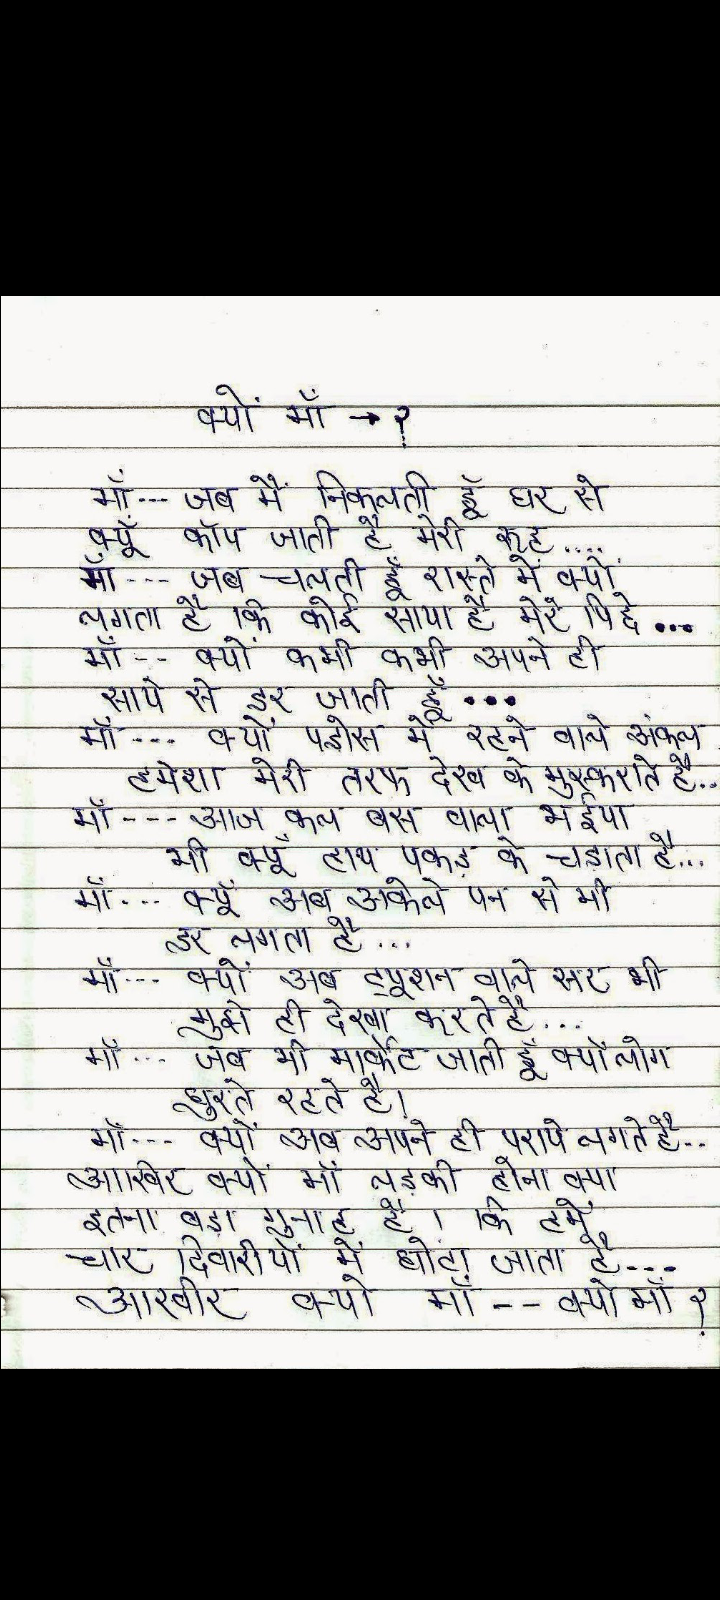 क्यों माँ → ?
माँ --- जब मैं निकलती हूँ घर से
क्यूँ काँप जाती है मेरी रूह ....
माँ --- जब चलती हूँ रास्ते में क्यों
लगता है कि कोई साया है मेरे पिछे ...
माँ -- क्यों कभी कभी अपने ही
साये से डर जाती हूँ ...
माँ --- क्यों पडोस में रहने वाले अंकल
हमेशा मेरी तरफ देख के मुस्कराते है...
माँ --- आज कल बस वाला भईया
भी क्यूँ हाथ पकड़ के चडाता है...
माँ --- क्यूँ अब अकेले पन से भी
डर लगता है ...
माँ --- क्यों अब ट्यूशन वाले सर भी
मुझे ही देखा करते है ...
माँ --- जब भी मार्केट जाती हूँ क्यों लोग
घुरते रहते है।
माँ --- क्यों अब अपने ही पराये लगते है...
आखिर क्यों माँ लड़की होना क्या
इतना बड़ा गुनाह है । कि हमें
चार दिवारीयों में घोटा जाता है ...
आखीर क्यो माँ -- क्यो माँ ?